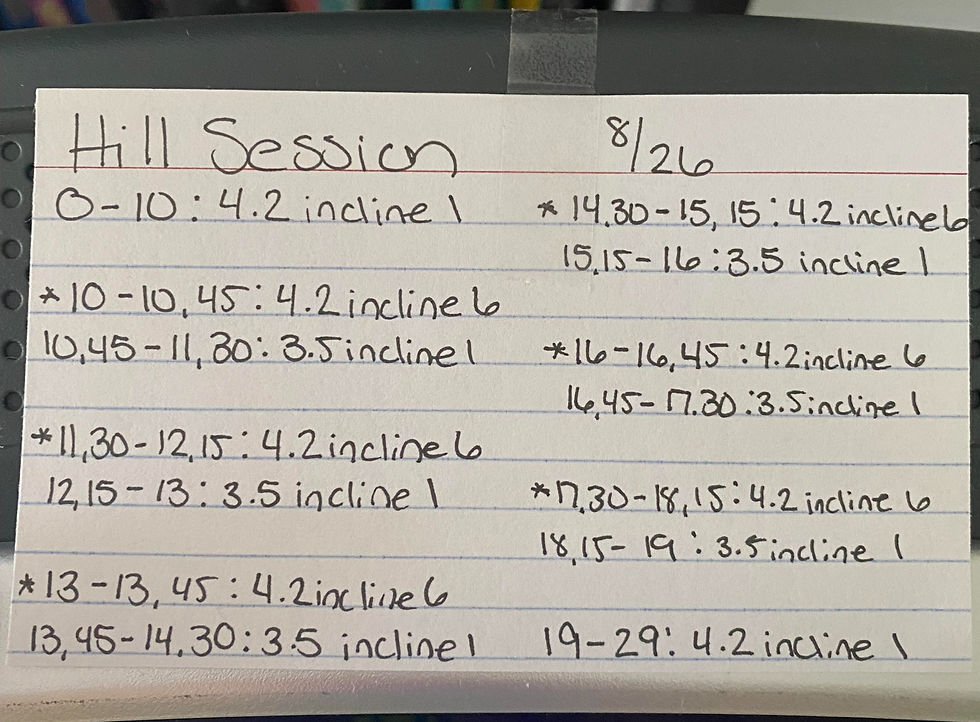 Hill Session 8/26
0-10: 4.2 incline 1
*10-10,45: 4.2 incline 6
10,45-11,30: 3.5 incline 1
*11,30-12,15: 4.2 incline 6
12,15-13: 3.5 incline 1
*13-13,45: 4.2 incline 6
13,45-14,30: 3.5 incline 1
*14.30-15,15: 4.2 incline 6
15,15-16: 3.5 incline 1
*16-16,45: 4.2 incline 6
16,45-17.30: 3.5 incline 1
*17,30-18,15: 4.2 incline 6
18,15-19: 3.5 incline 1
19-29: 4.2 incline 1